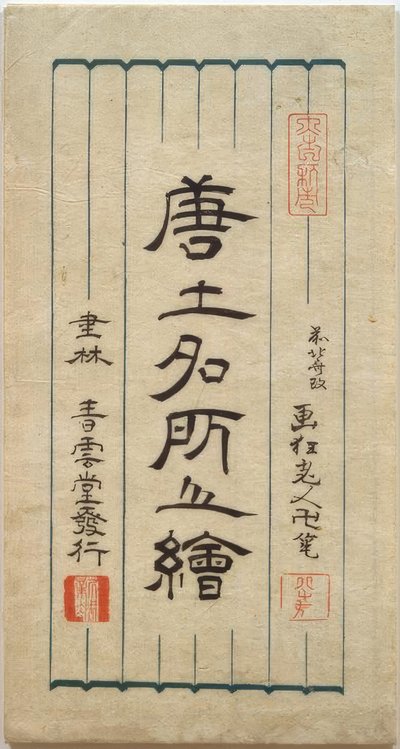 前北斎改 画狂老人卍筆
唐土名所之繪
書林 青雲堂發行